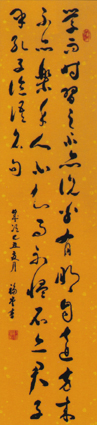 学而时習之不亦说乎有朋自遠方来
不亦樂乎人不知而不愠不亦君子
乎孔子论语名句
己丑夏月